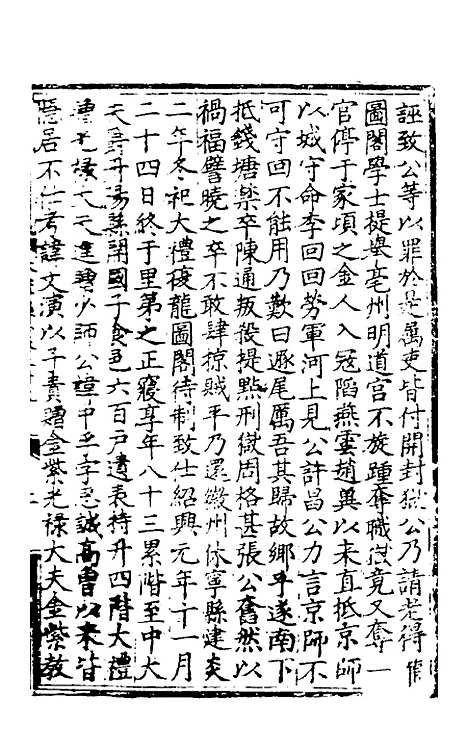 誣致公等以罪於是厲吏皆付開封獄公乃請老得
圖閣學士提舉亳州明道宮不旋踵奪職獄竟又奪一
官停于家項之金人入冦陷燕雲趙冀以来直抵京師
以城守命李回勞軍河上見公許昌公力言京師不
可守回不能用乃歎曰遯尾厲吾其歸故鄉乎遂南下
抵錢塘樂卒陳通叛殺提點刑獄周格甚張公奮然以
禍福譬曉之卒不敢肆掠賊平乃還徽州休寧縣建炎
二年冬祀大禮復龍圖閣待制致仕紹興元年十一月
二十四日終于里第之正寢享年八十三累階至中大
夫爵丹陽縣開國子食邑六百戸遺表特升四階大禮
贈光祿大夫進贈少師公諱中孚字思誠高曾以来皆
隱居不仕考諱文演以子貴贈金紫光禄大夫金紫教